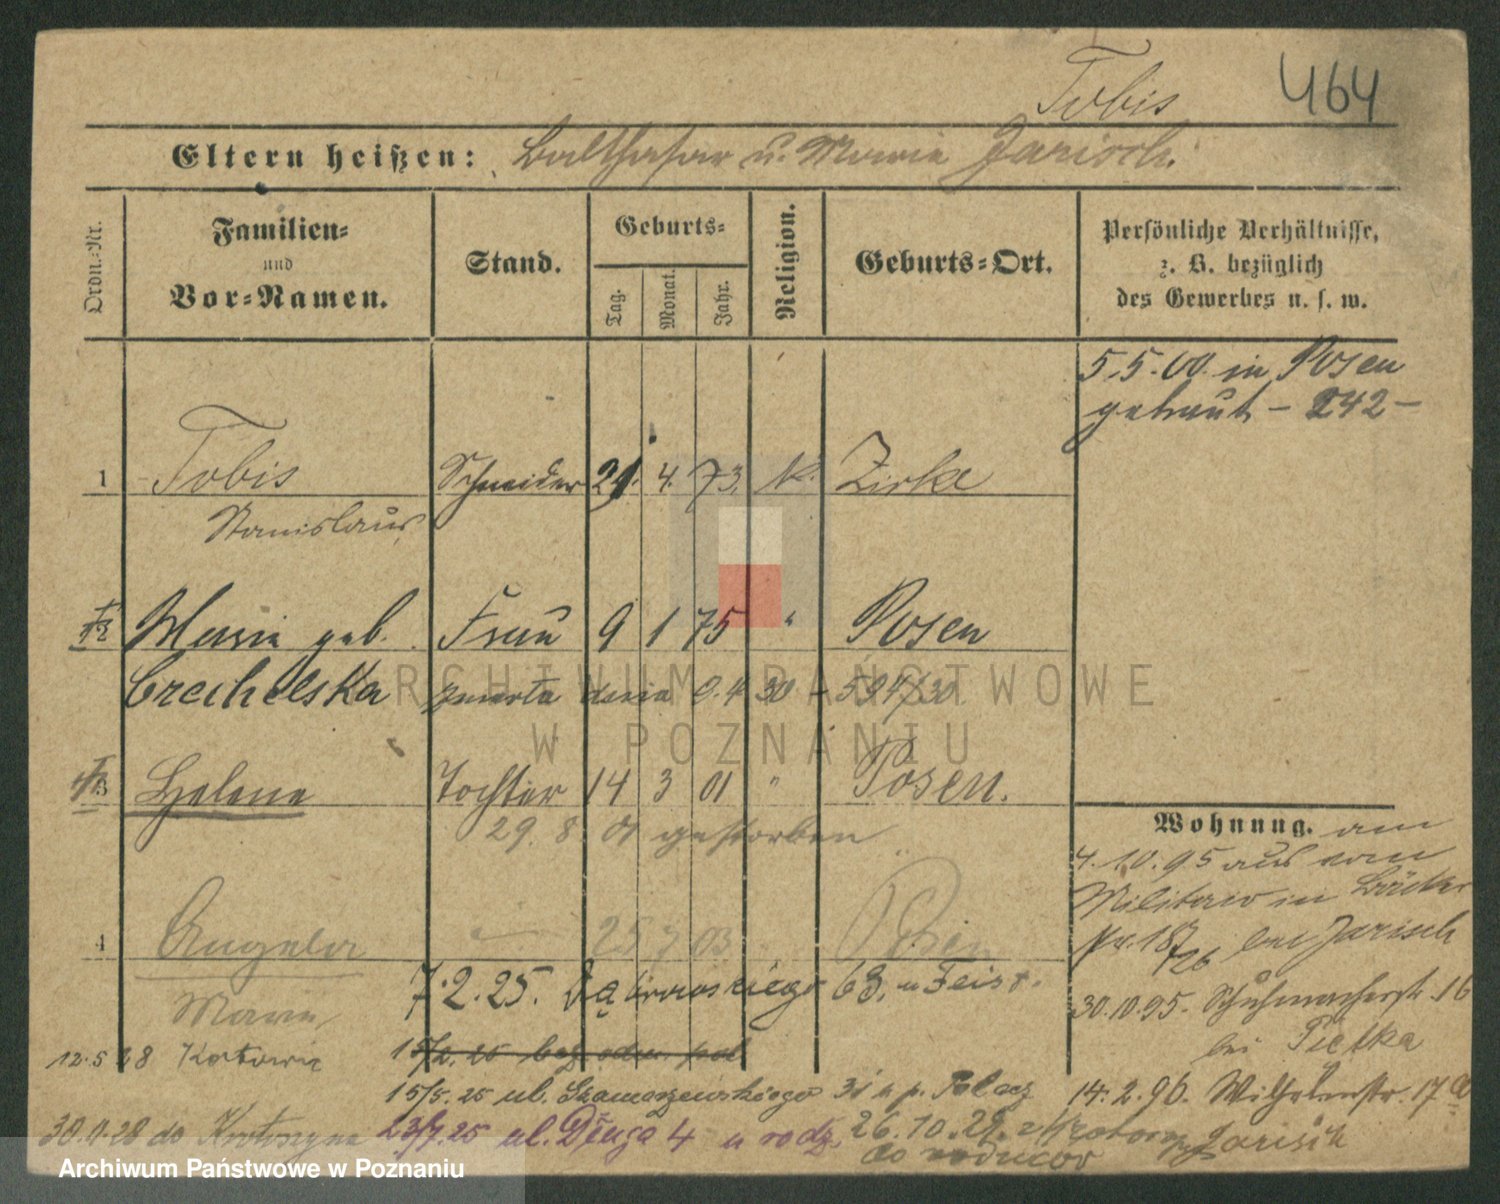 Tobis 464
Eltern heißen: Balthasar u. Marie Jarisch.
Ordn.-Nr.
Familien-
und
Vor-Namen.
Stand.
Geburts-
Tag.
Monat.
Jahr.
Religion.
Geburts-Ort.
Persönliche Verhältnisse,
z. B. bezüglich
des Gewerbes u. s. w.
5.5.00. in Posen
getraut - 242 -
1 Tobis Schneider 21. 4. 73. K. Zirke
Stanislaus
2 Marie geb. Frau 9 1 75 " Posen
Czechelska zmarła dnia 9.4.30 - 594/30
3 Helene Tochter 14 3 01 " Posen.
29. 8. 01 gestorben
4 Angela 25 7 03 Posen
Marie
7.2.25. Dąbrowskiego 63. u Feist.
Wohnung. am
4.10.95 aus vom
Militär in Bäcker
str. 18/26 bei Jarisch
30.10.95. Schuhmacherstr. 16
bei Pietka
14.2.96. Wilhelmstr. 17
Jarisch
12.5.28 Katowic
15/5. 25 ul. Szamarzewskiego 31 u p. Palacz
30.11.28 do Krotoszyna 23/7.25 ul. Długa 4 u rodz. 26.10.29. z Krotoszyna
do rodziców
ARCHIWUM PAŃSTWOWE
W POZNANIU
Archiwum Państwowe w Poznaniu